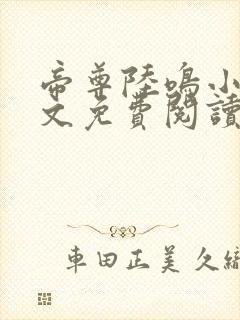 帝尊陸鳴小
文免費閱讀
車田正美 久織